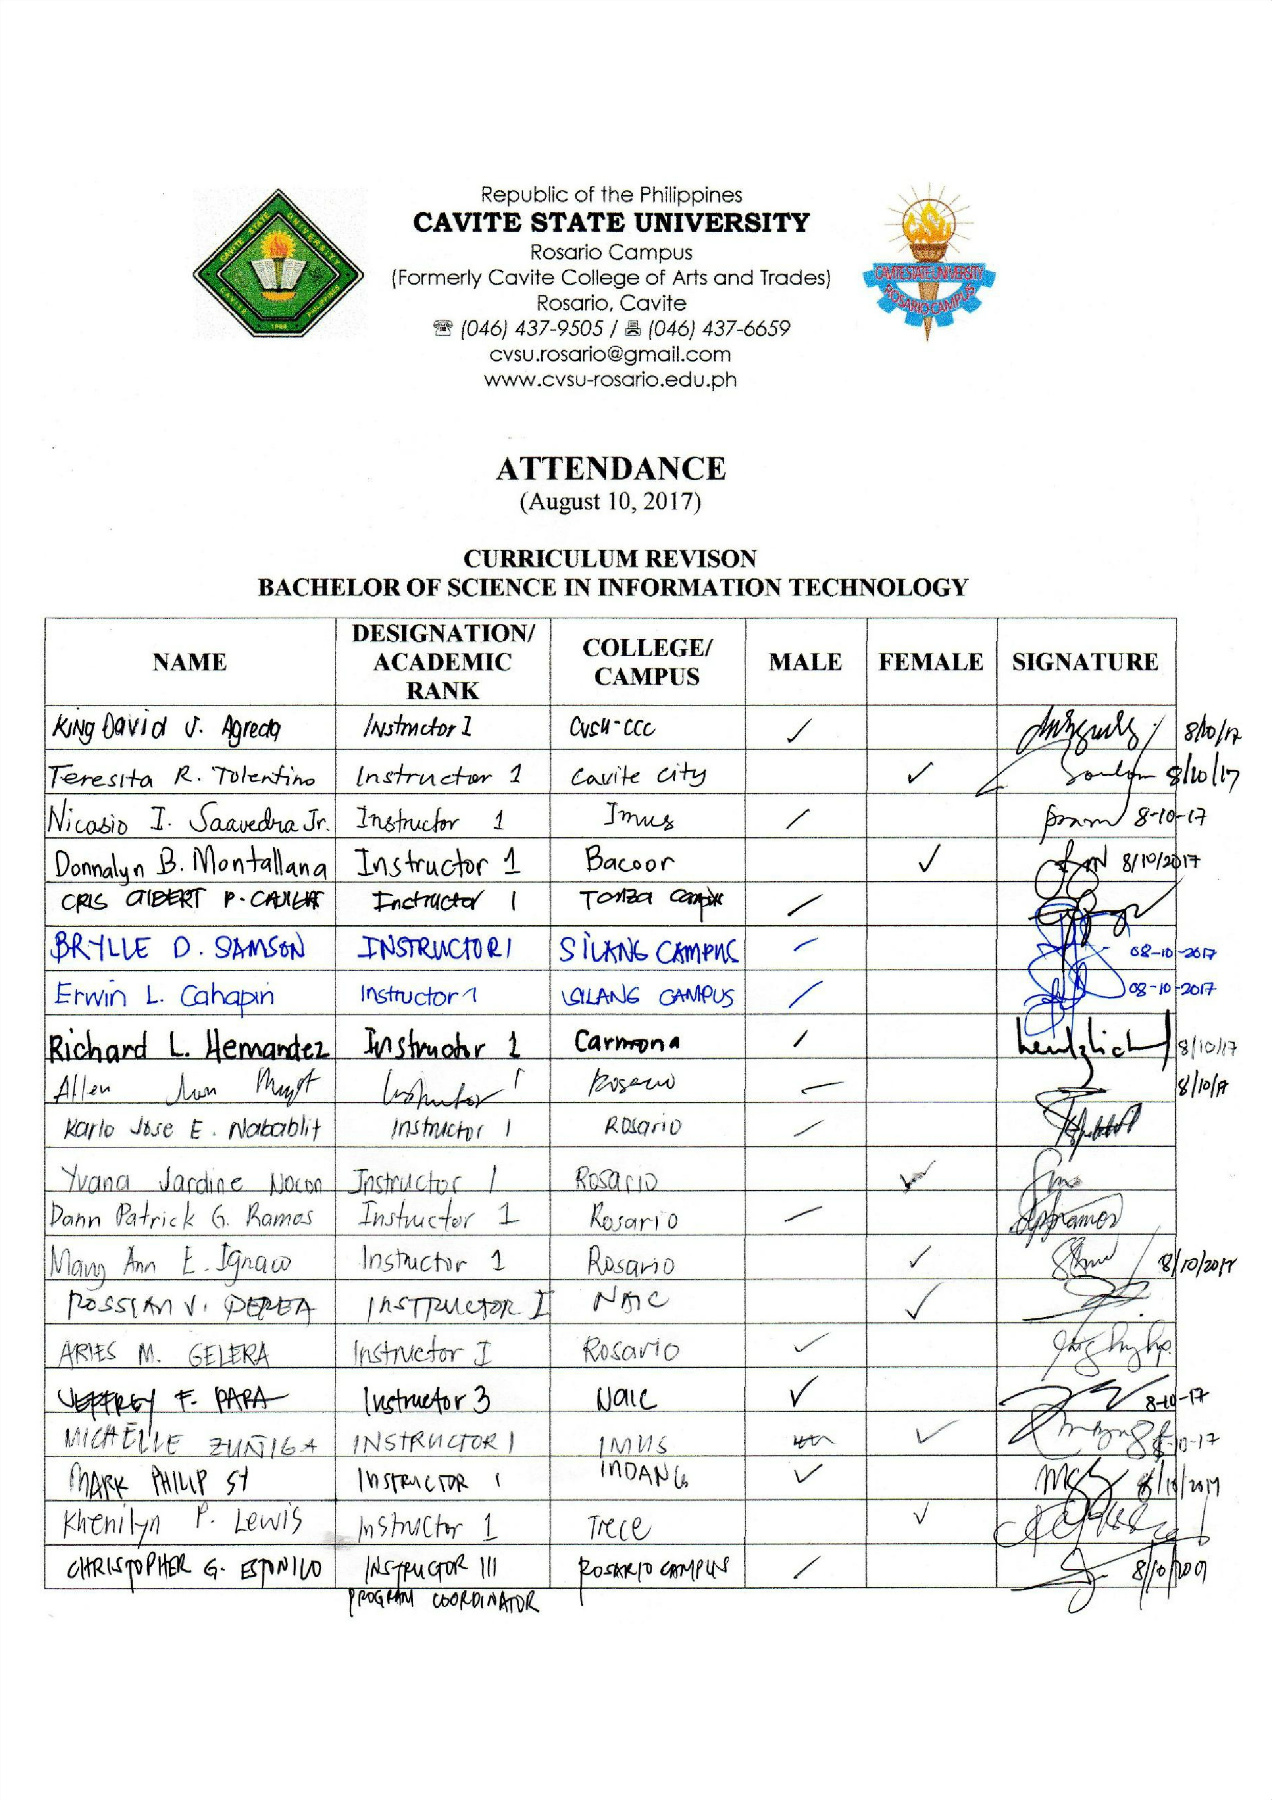 Republic of the Philippines
CAVITE STATE UNIVERSITY
Rosario Campus
(Formerly Cavite College of Arts and Trades)
Rosario, Cavite
☎ (046) 437-9505 / (046) 437-6659
cvsu.rosario@gmail.com
www.cvsu-rosario.edu.ph
CAVITE STATE UNIVERSITY
ROSARIO CAMPUS
ATTENDANCE
(August 10, 2017)
CURRICULUM REVISON
BACHELOR OF SCIENCE IN INFORMATION TECHNOLOGY
NAME DESIGNATION/ ACADEMIC RANK COLLEGE/ CAMPUS MALE FEMALE SIGNATURE
King David V. Agreda Instructor I CVSU-CCC ✓ 8/10/17
Teresita R. Tolentino Instructor 1 Cavite City ✓ 8/10/17
Nicasio I. Saavedra Jr. Instructor 1 Imus 8-10-17
Donnalyn B. Montallana Instructor 1 Bacoor ✓ 8/10/2017
CRIS P. Instructor 1 Tanza
BRYLLE D. SAMSON INSTRUCTOR 1 SILANG CAMPUS 08-10-2017
Erwin L. Cahapin Instructor 1 SILANG CAMPUS 08-10-2017
Richard L. Hernandez Instructor 1 Carmona 8/10/17
Allen Instructor 1 Rosario 8/10/17
Karlo Jose E. Nabablit Instructor 1 Rosario
Yvana Jardine Nocon Instructor 1 Rosario ✓
Dann Patrick G. Ramos Instructor 1 Rosario
Mary Ann E. Ignaco Instructor 1 Rosario ✓ 8/10/2017
ROSSIAN V. PEREA INSTRUCTOR I NAIC ✓
ARIES M. GELERA Instructor I Rosario ✓
JEFFREY F. PAPA Instructor 3 Naic ✓ 8-10-17
MICHELLE ZUÑIGA INSTRUCTOR 1 IMUS ✓ 8-10-17
MARK PHILIP SY INSTRUCTOR 1 INDANG ✓ 8/10/2017
Khenilyn P. Lewis Instructor 1 Trece ✓
CHRISTOPHER G. ESTONILO INSTRUCTOR III ROSARIO CAMPUS 8/10/2017
PROGRAM COORDINATOR